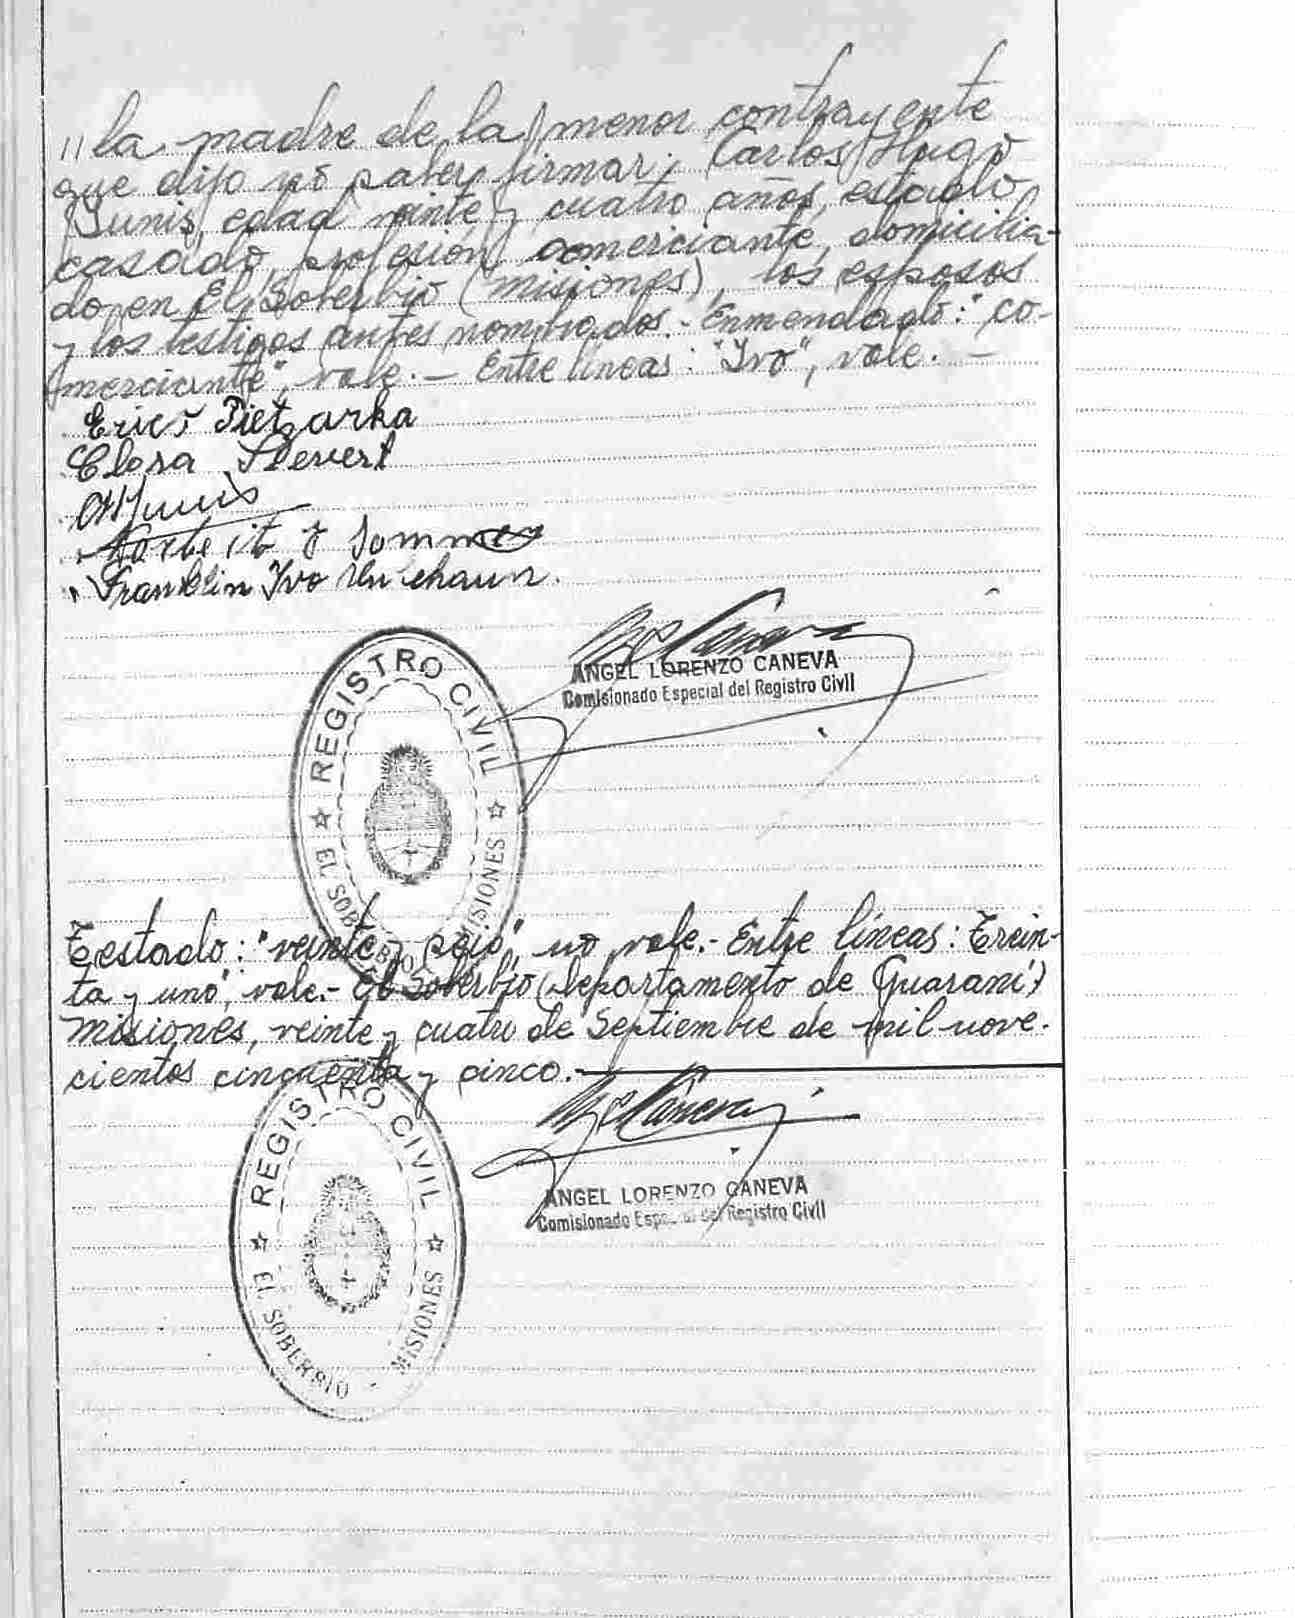 "la madre de la menor contrayente
que dijo no saber firmar; Carlos Hugo
Yunis, edad veinte y cuatro años, estado
casado, profesión comerciante, domicilia-
do en El Soberbio (Misiones), los esposos
y los testigos antes nombrados.- Enmendado: "co-
merciante", vale.- Entre líneas: "Ivo", vale.-
Erico Pietzarka
Clora Sievert
Norbeit J Sommer
Franklin Ivo
ANGEL LORENZO CANEVA
Comisionado Especial del Registro Civil
REGISTRO CIVIL
EL SOBERBIO MISIONES
Testado: "veinte y seis", no vale.- Entre líneas: Trein-
ta y uno", vale.- El Soberbio (departamento de Guaraní)
Misiones, veinte y cuatro de Septiembre de mil nove-
cientos cincuenta y cinco.-
ANGEL LORENZO CANEVA
Comisionado Especial del Registro Civil
REGISTRO CIVIL
EL SOBERBIO - MISIONES